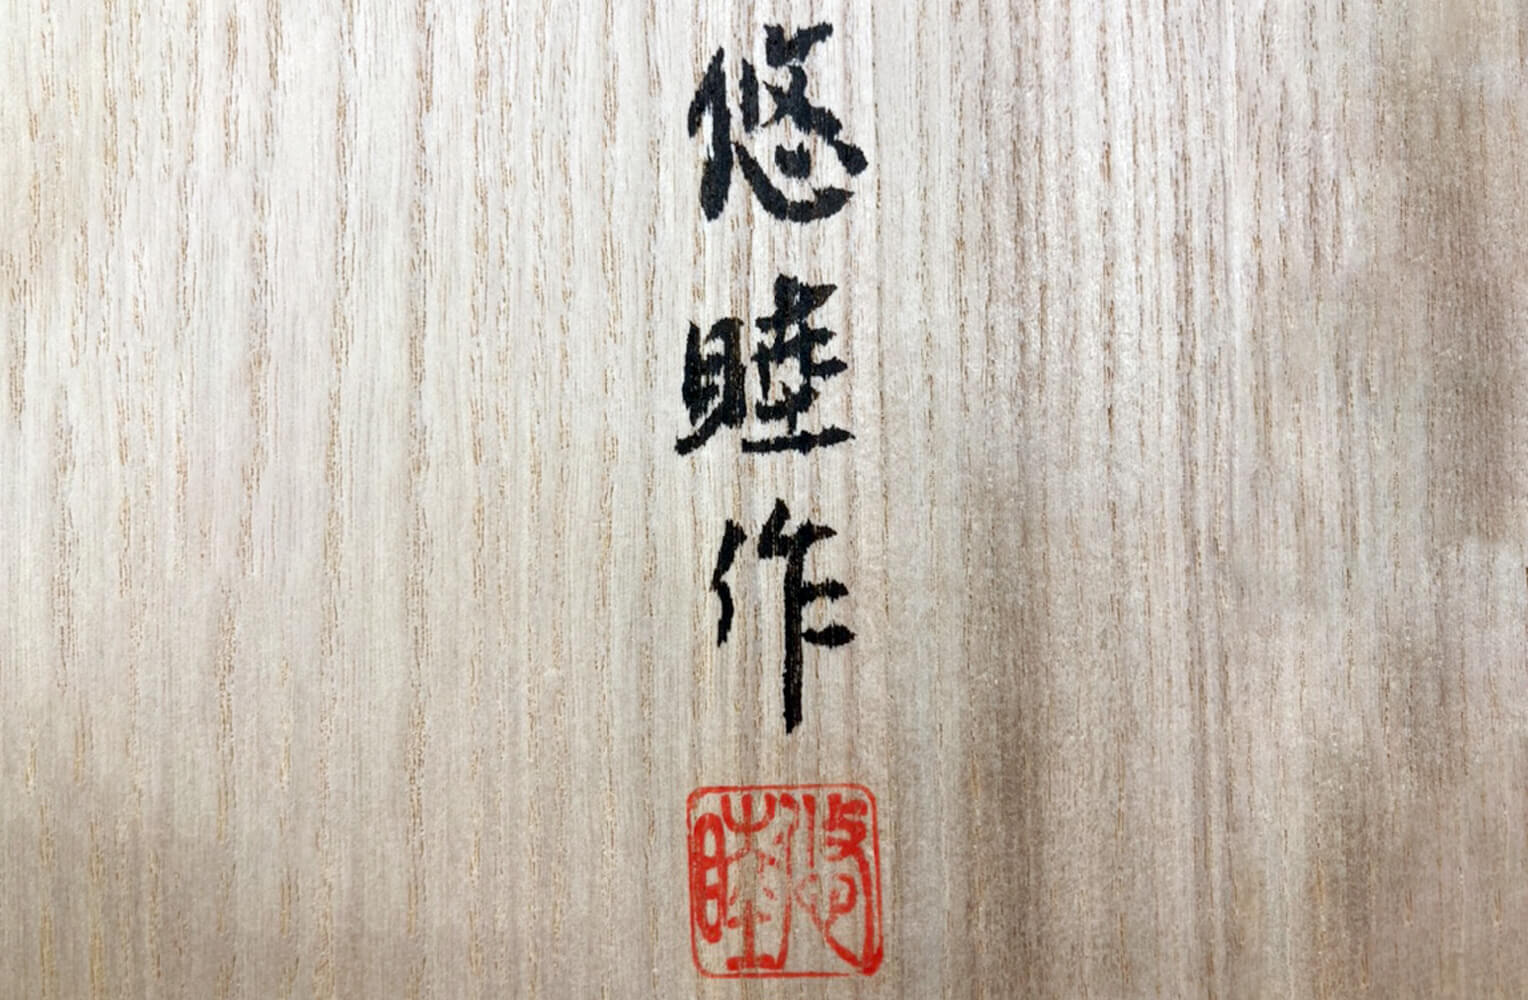 悠睦作
悠睦